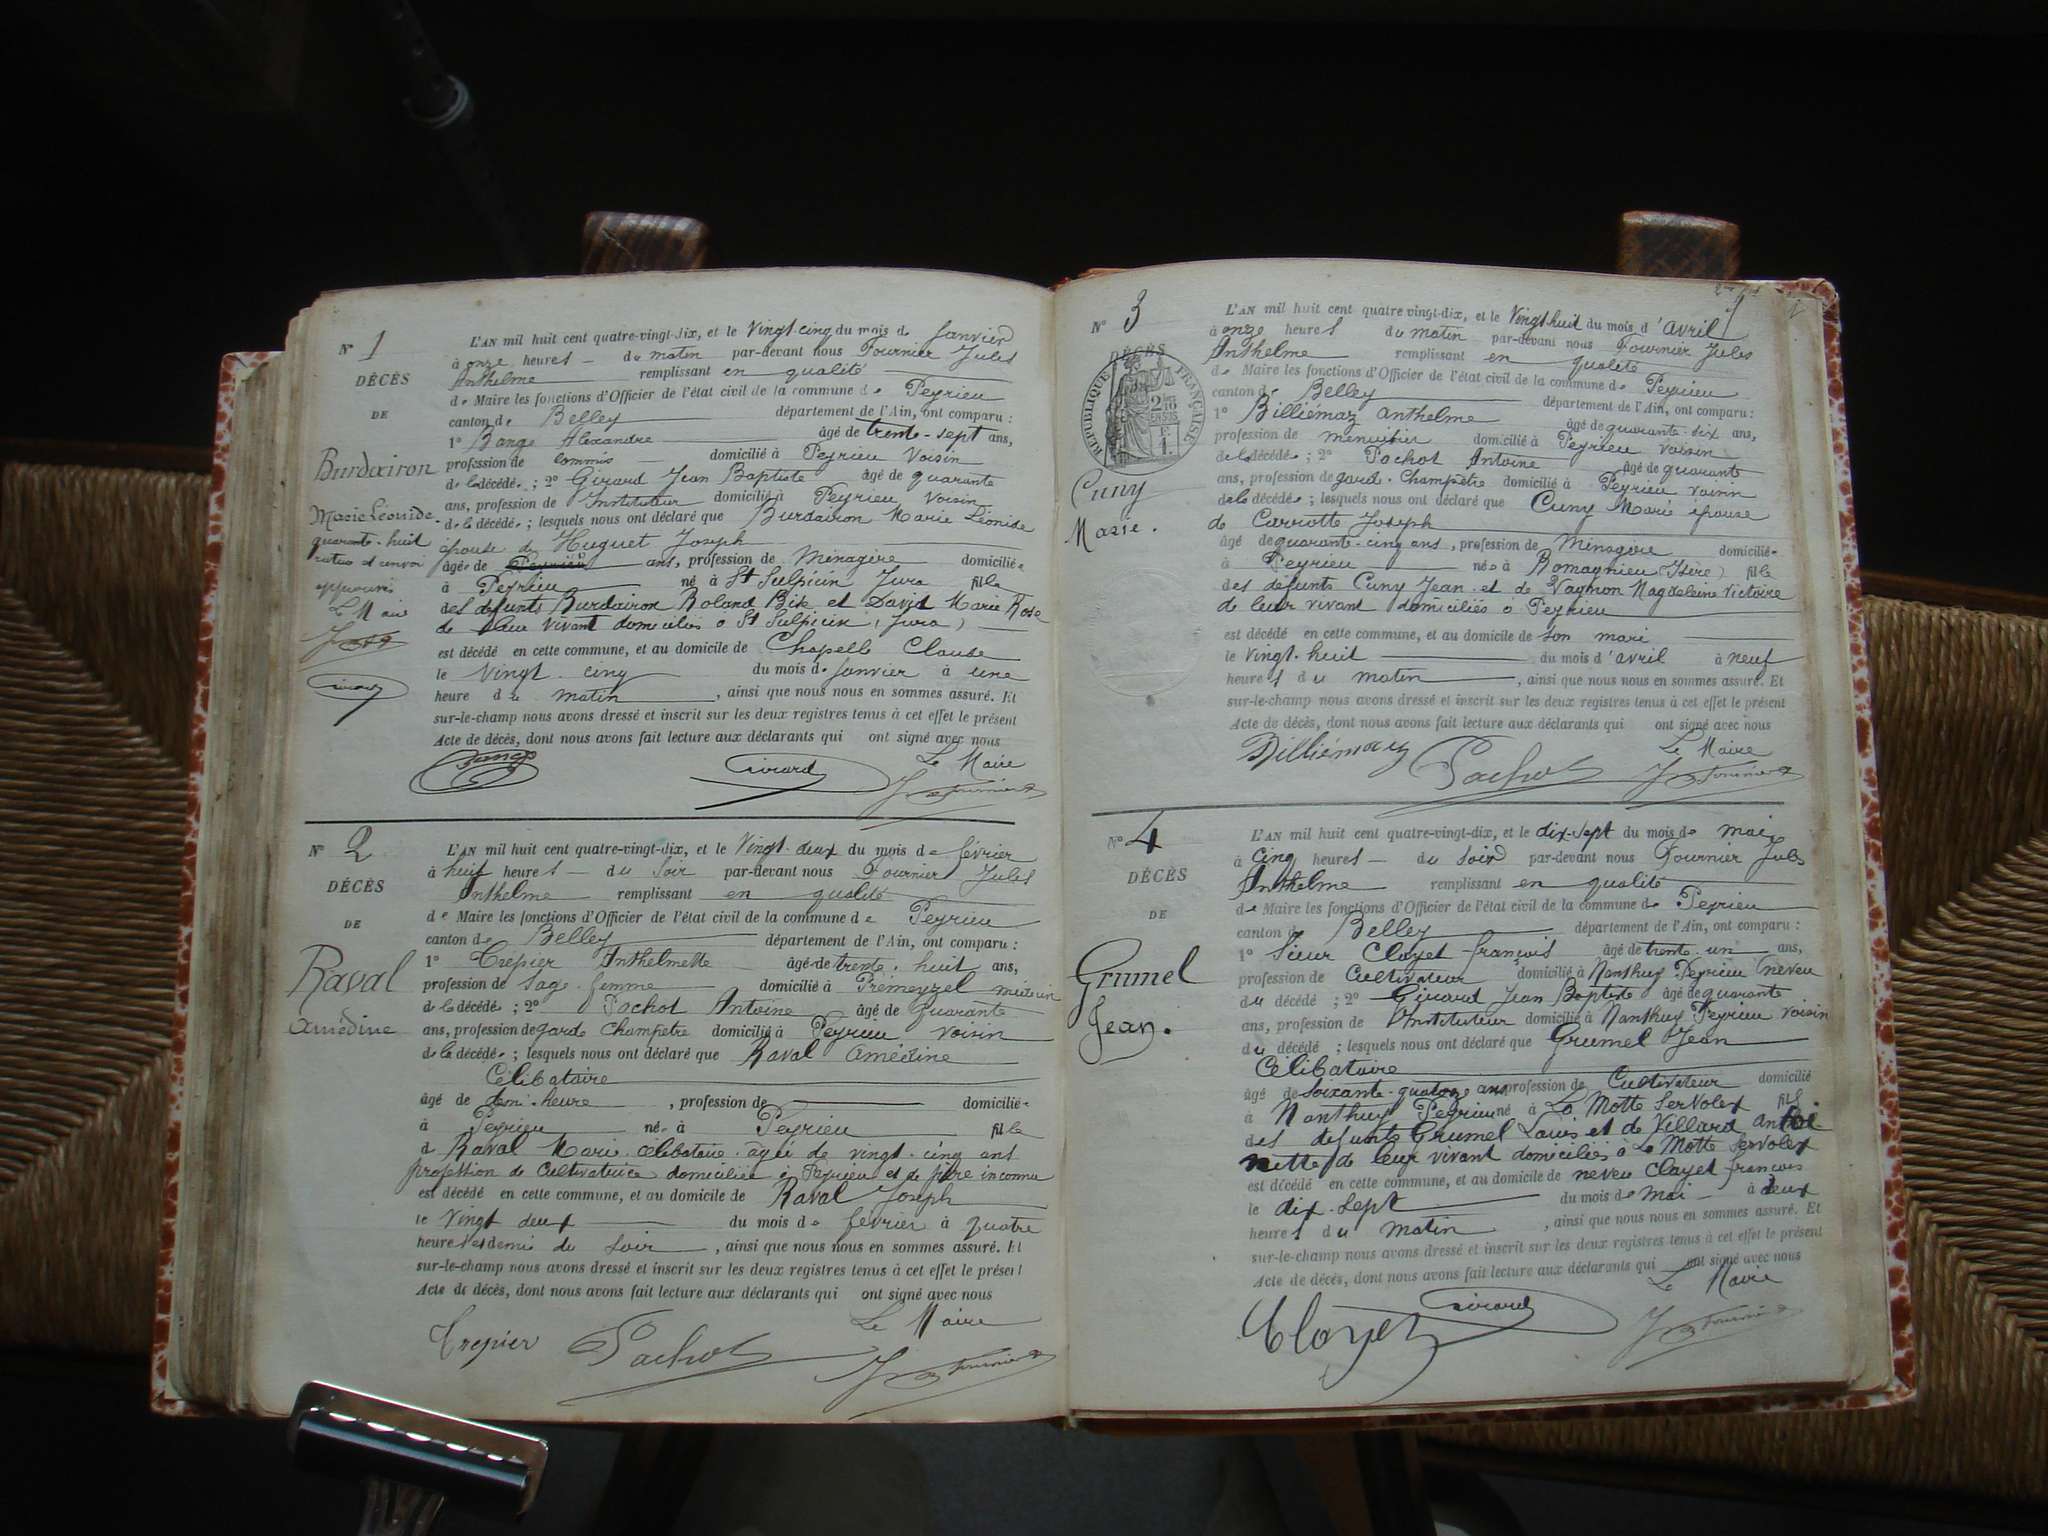 N° 1
DÉCÈS
DE
Burdairon
Marie Léonide
quarante-huit
ratures et renvoi
approuvés
Le Maire
Girard
L'AN mil huit cent quatre-vingt-dix, et le Vingt-cinq du mois de Janvier
à onze heures du matin par-devant nous Fournier Jules
Anthelme remplissant en qualité
de Maire les fonctions d'Officier de l'état civil de la commune de Peyrieu
canton de Belley département de l'Ain, ont comparu :
1° Bange Alexandre âgé de trente-sept ans,
profession de commis domicilié à Peyrieu Voisin
de la décédée ; 2° Girard Jean Baptiste âgé de quarante
ans, profession de Instituteur domicilié à Peyrieu Voisin
de la décédée ; lesquels nous ont déclaré que Burdairon Marie Léonide
épouse de Huguet Joseph
âgée de Peyrieu ans, profession de Ménagère domiciliée
à Peyrieu né à St Sulpicin Jura fille
des défunts Burdairon Roland Bite et David Marie Rose
de leur vivant domiciliés à St Sulpicin (Jura)
est décédé en cette commune, et au domicile de Chapelle Claude
le Vingt-cinq du mois de Janvier à une
heure du matin, ainsi que nous nous en sommes assuré. Et
sur-le-champ nous avons dressé et inscrit sur les deux registres tenus à cet effet le présent
Acte de décès, dont nous avons fait lecture aux déclarants qui ont signé avec nous
Le Maire
Bange Girard J A Fournier
N° 2
DÉCÈS
DE
Raval
Amédine
L'AN mil huit cent quatre-vingt-dix, et le Vingt-deux du mois de février
à huit heures du Soir par-devant nous Fournier Jules
Anthelme remplissant en qualité
de Maire les fonctions d'Officier de l'état civil de la commune de Peyrieu
canton de Belley département de l'Ain, ont comparu :
1° Crepier Anthelmette âgé de trente-huit ans,
profession de Sage-femme domicilié à Prémeyzel
de la décédée ; 2° Pochot Antoine âgé de Quarante
ans, profession de garde Champêtre domicilié à Peyrieu voisin
de la décédée ; lesquels nous ont déclaré que Raval Amédine
Célibataire
âgé de demi-heure, profession de domiciliée
à Peyrieu née à Peyrieu fille
d Raval Marie célibataire âgée de vingt-cinq ans
profession de Cultivatrice domiciliée à Peyrieu et de père inconnu
est décédé en cette commune, et au domicile de Raval Joseph
le Vingt deux du mois de février à quatre
heures et demie du Soir, ainsi que nous nous en sommes assuré. Et
sur-le-champ nous avons dressé et inscrit sur les deux registres tenus à cet effet le présent
Acte de décès, dont nous avons fait lecture aux déclarants qui ont signé avec nous
Le Maire
Crepier Pachot J A Fournier
N° 3
DÉCÈS
RÉPUBLIQUE FRANÇAISE
2/10 EN SUS
Cuny
Marie.
L'AN mil huit cent quatre-vingt-dix, et le Vingt-huit du mois d'avril
à onze heures du matin par-devant nous Fournier Jules
Anthelme remplissant en qualité
de Maire les fonctions d'Officier de l'état civil de la commune de Peyrieu
canton de Belley département de l'Ain, ont comparu :
1° Billiémaz Anthelme âgé de quarante-six ans,
profession de menuisier domicilié à Peyrieu voisin
de la décédée ; 2° Pochot Antoine âgé de quarante
ans, profession de garde-Champêtre domicilié à Peyrieu voisin
de la décédée ; lesquels nous ont déclaré que Cuny Marie épouse
de Carriotte Joseph
âgé de quarante-cinq ans, profession de Ménagère domiciliée
à Peyrieu née à Romagnieu (Isère) fille
des défunts Cuny Jean et de Vagnon Magdeleine Victoire
de leur vivant domiciliés à Peyrieu
est décédé en cette commune, et au domicile de son mari
le Vingt-huit du mois d'avril à neuf
heures du matin, ainsi que nous nous en sommes assuré. Et
sur-le-champ nous avons dressé et inscrit sur les deux registres tenus à cet effet le présent
Acte de décès, dont nous avons fait lecture aux déclarants qui ont signé avec nous
Le Maire
Billiémaz Pachot J A Fournier
N° 4
DÉCÈS
DE
Grumel
Jean.
L'AN mil huit cent quatre-vingt-dix, et le dix-sept du mois de mai
à cinq heures du soir par-devant nous Fournier Jules
Anthelme remplissant en qualité
de Maire les fonctions d'Officier de l'état civil de la commune de Peyrieu
canton de Belley département de l'Ain, ont comparu :
1° Sieur Clayet françois âgé de trente-un ans,
profession de Cultivateur domicilié à Nanthuy Peyrieu neveu
du décédé ; 2° Girard Jean Baptiste âgé de quarante
ans, profession de Instituteur domicilié à Nanthuy Peyrieu voisin
du décédé ; lesquels nous ont déclaré que Grumel Jean
Célibataire
âgé de soixante-quatorze ans profession de Cultivateur domicilié
à Nanthuy Peyrieu né à La Motte Servolex fils
des défunts Grumel Louis et de Villard Antoi-
nette de leur vivant domiciliés à La Motte Servolex
est décédé en cette commune, et au domicile de neveu Clayet françois
le dix-sept du mois de mai à deux
heures du matin, ainsi que nous nous en sommes assuré. Et
sur-le-champ nous avons dressé et inscrit sur les deux registres tenus à cet effet le présent
Acte de décès, dont nous avons fait lecture aux déclarants qui ont signé avec nous
Le Maire
Clayet Girard J A Fournier